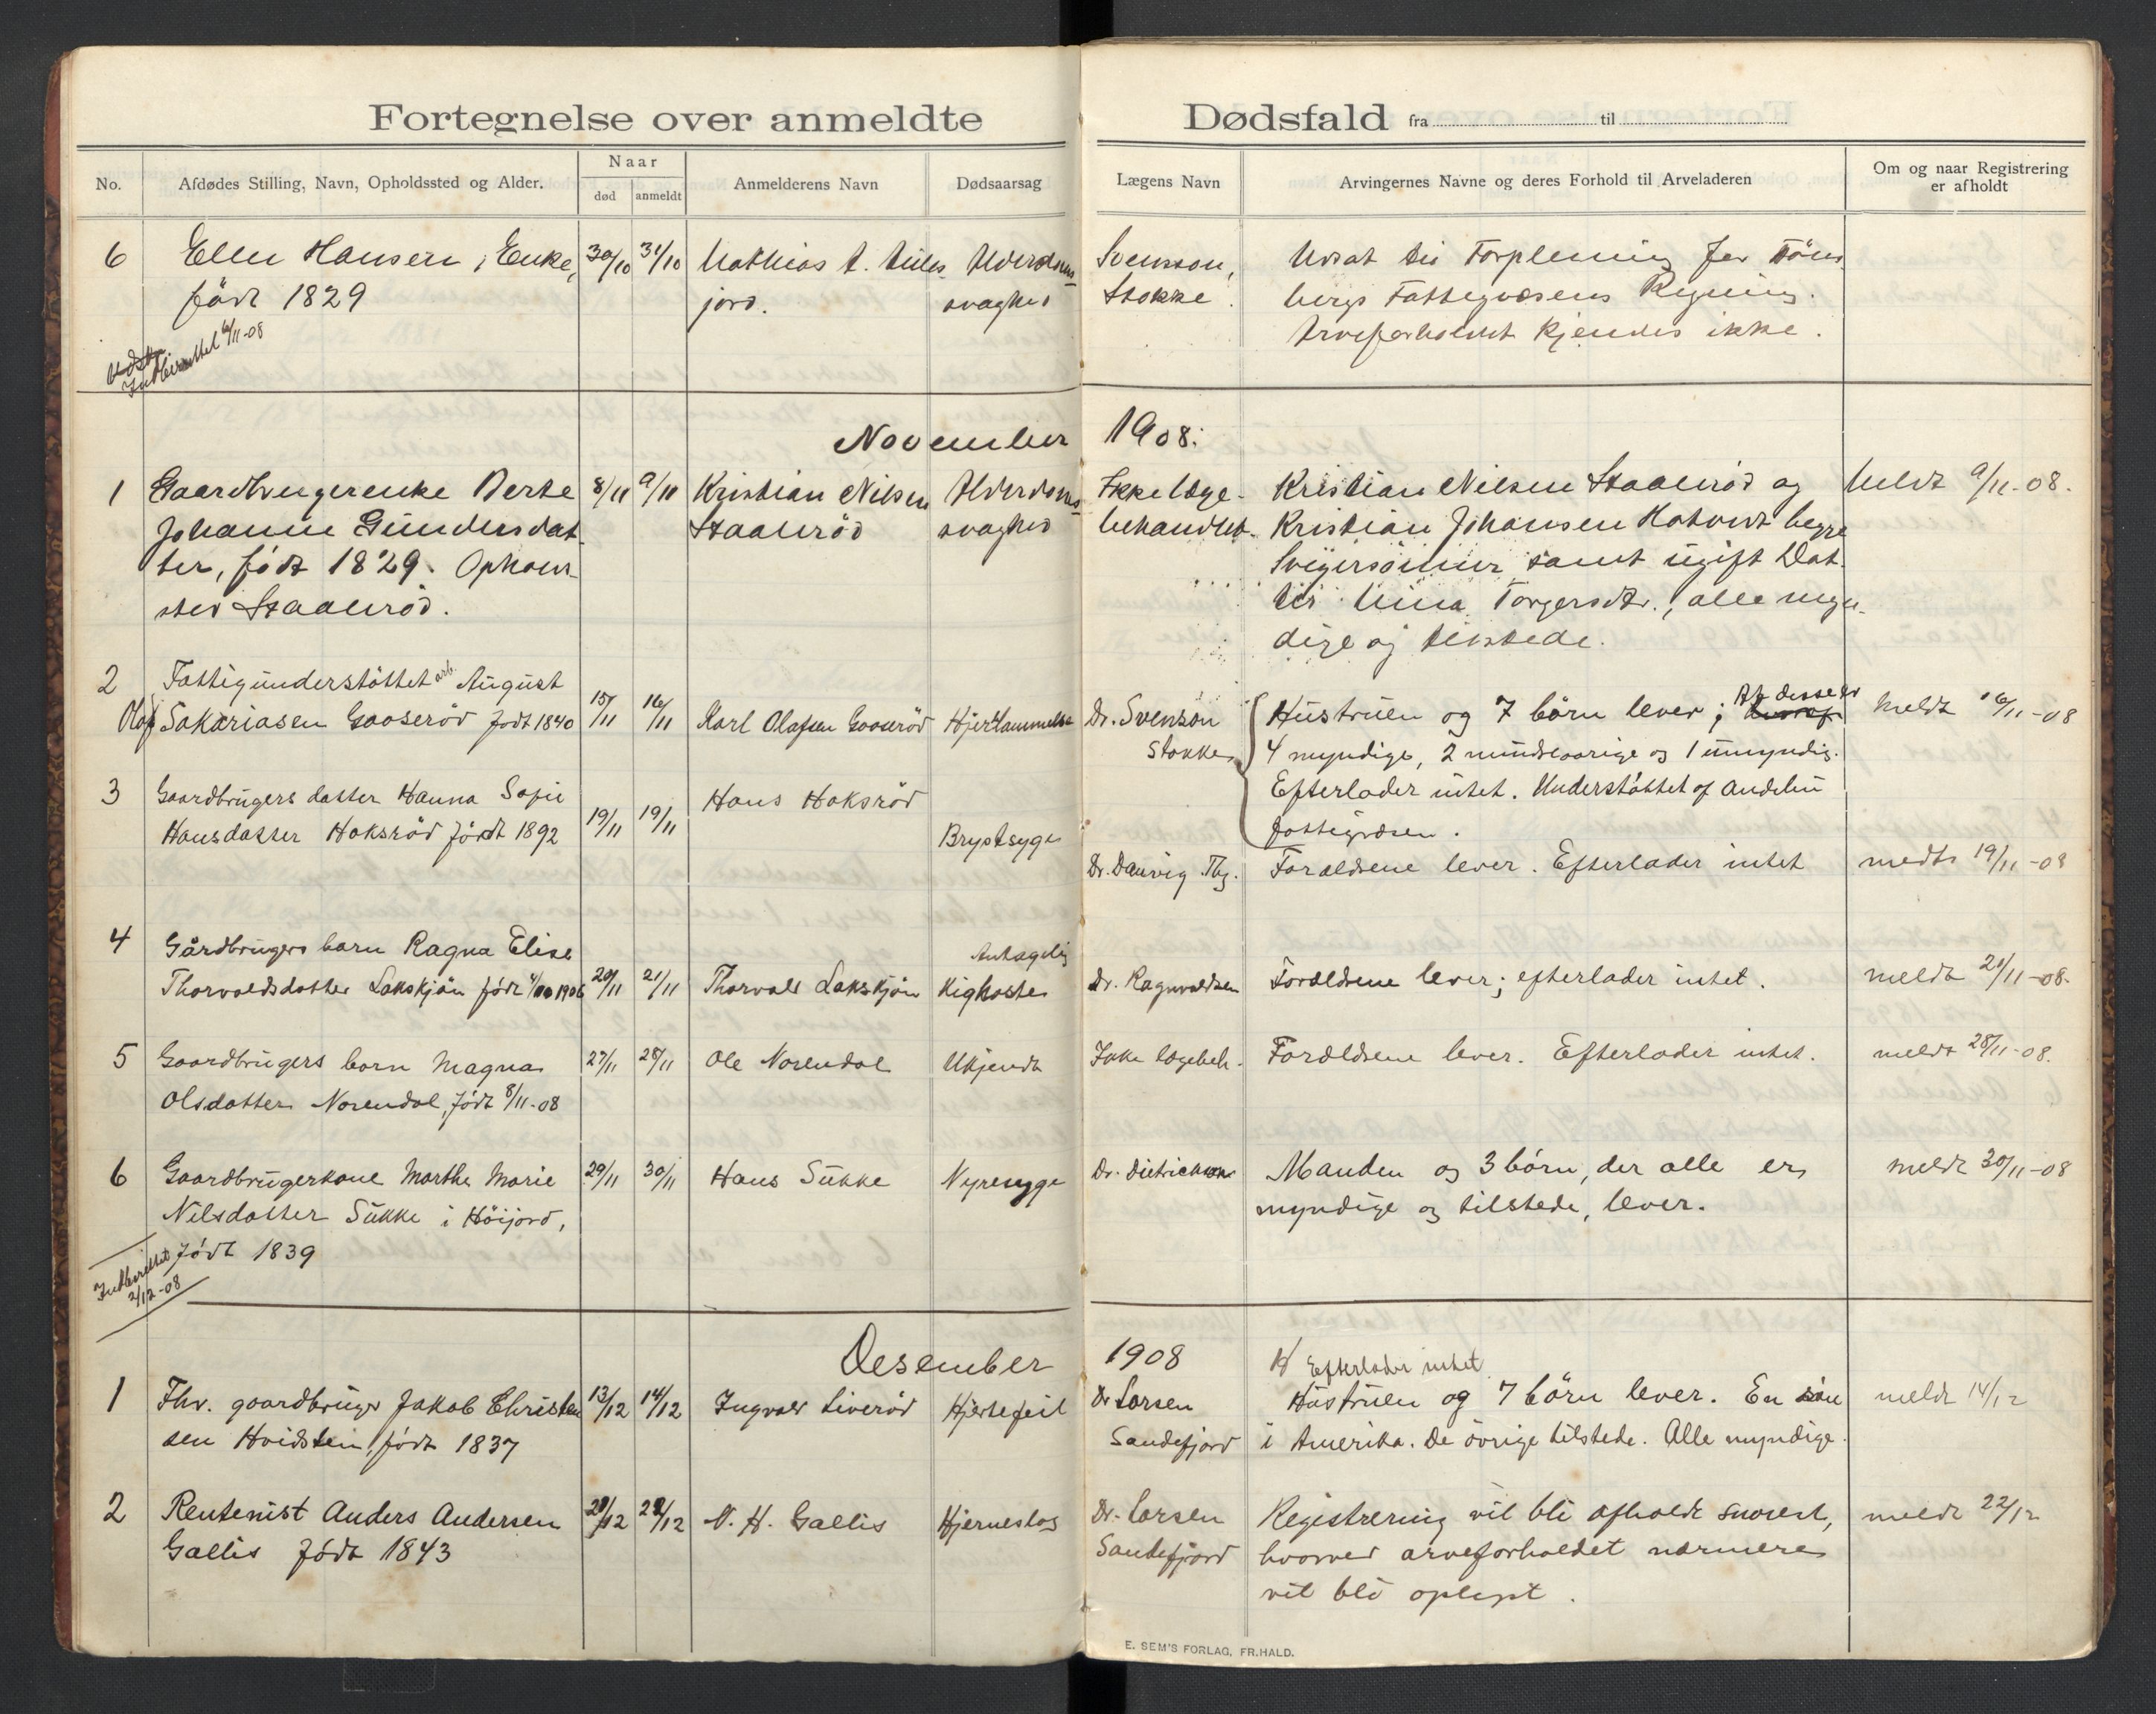 Fortegnelse over anmeldte Dødsfald fra til
No.
Afdødes Stilling, Navn, Opholdssted og Alder.
Naar
død
anmeldt
Anmelderens Navn
Dødsaarsag
Lægens Navn
Arvingernes Navne og deres Forhold til Arveladeren
Om og naar Registrering
er afholdt
6
Ellen Hansen, Enke,
født 1829
30/10
31/10
Mathias A.
jord.
Alderdoms
svaghed
Svensson,
Stokke.
Udsat til Forpleining for Töns
bergs Fattigvæsens Regning.
Arveforholdet kjendes ikke.
Indberettet 6/11-08
November 1908.
1
Gaardbrugerenke Berte
Johanne Gundersdat
ter, født 1829. Ophold
sted Staalerød.
8/11
9/11
Kristian Nilsen
Staalerød
Alderdoms
svaghed
Ikke læge-
behandlet.
Kristian Nilsen Staalerød og
Kristian Johansen begge
Svigersönner samt ugift Dat
ter Torgersdtr., alle myn-
dige og tilstede.
Meldt 9/11-08.
2
Fattigunderstöttet arb. August
Olaf Sakariasen Gaaserød født 1840
15/11
16/11
Karl Olafsen Gaaserød
Hjertlammelse
Dr. Svenson
Stokke
Hustruen og 7 börn lever; Af disse er
4 myndige, 2 mindreaarige og 1 umyndig.
Efterlader intet. Understöttet af Andebu
fattigvæsen.
Meldt 16/11-08
3
Gaardbrugers datter Hanna Sofie
Hansdatter Haksröd født 1892
19/11
19/11
Hans Haksröd
Brystsyge
Dr. Dauvig Tbg.
Forældrene lever. Efterlader intet
meldt 19/11-08
4
Gårdbrugers barn Ragna Elise
Thorvaldsdatter Lakskjön født 1906
20/11
21/11
Thorvald Lakskjön
Antagelig
Kighoste
Dr. Ragnvaldsen
Forældrene lever; efterlader intet.
meldt 21/11-08.
5
Gaardbrugers barn Magna
Olsdatter Norendal, født 8/11-08
27/11
28/11
Ole Norendal
Ukjendt
Ikke lægebeh.
Forældrene lever. Efterlader intet.
meldt 28/11-08.
6
Gaardbrugerkone Marthe Marie
Nilsdatter Sukke i Höijord,
født 1839
29/11
30/11
Hans Sukke
Nyresyge
Dr. Dietrichson
Manden og 3 börn, der alle er
myndige og tilstede, lever.
meldt 30/11-08
Indberettet
2/12-08
Desember 1908
1
Fhv. gaardbruger Jakob Christen
sen Hvidstein, født 1837
13/12
14/12
Ingvald Liveröd
Hjertefeil
Dr Larsen
Sandefjord
Efterlader intet
Hustruen og 7 börn lever. En sön
i Amerika. De övrige tilstede. Alle myndige.
meldt 14/12
2
Rentenist Anders Andersen
Gallis født 1843
N. H. Gallis
Hjerneslag
Dr. Larsen
Sandefjord
Registrering vil bli afholdt snarest,
hvorved arveforholdet nærmere
vil bli oplyst.
meldt 22/12
E. SEM'S FORLAG, FR.HALD.